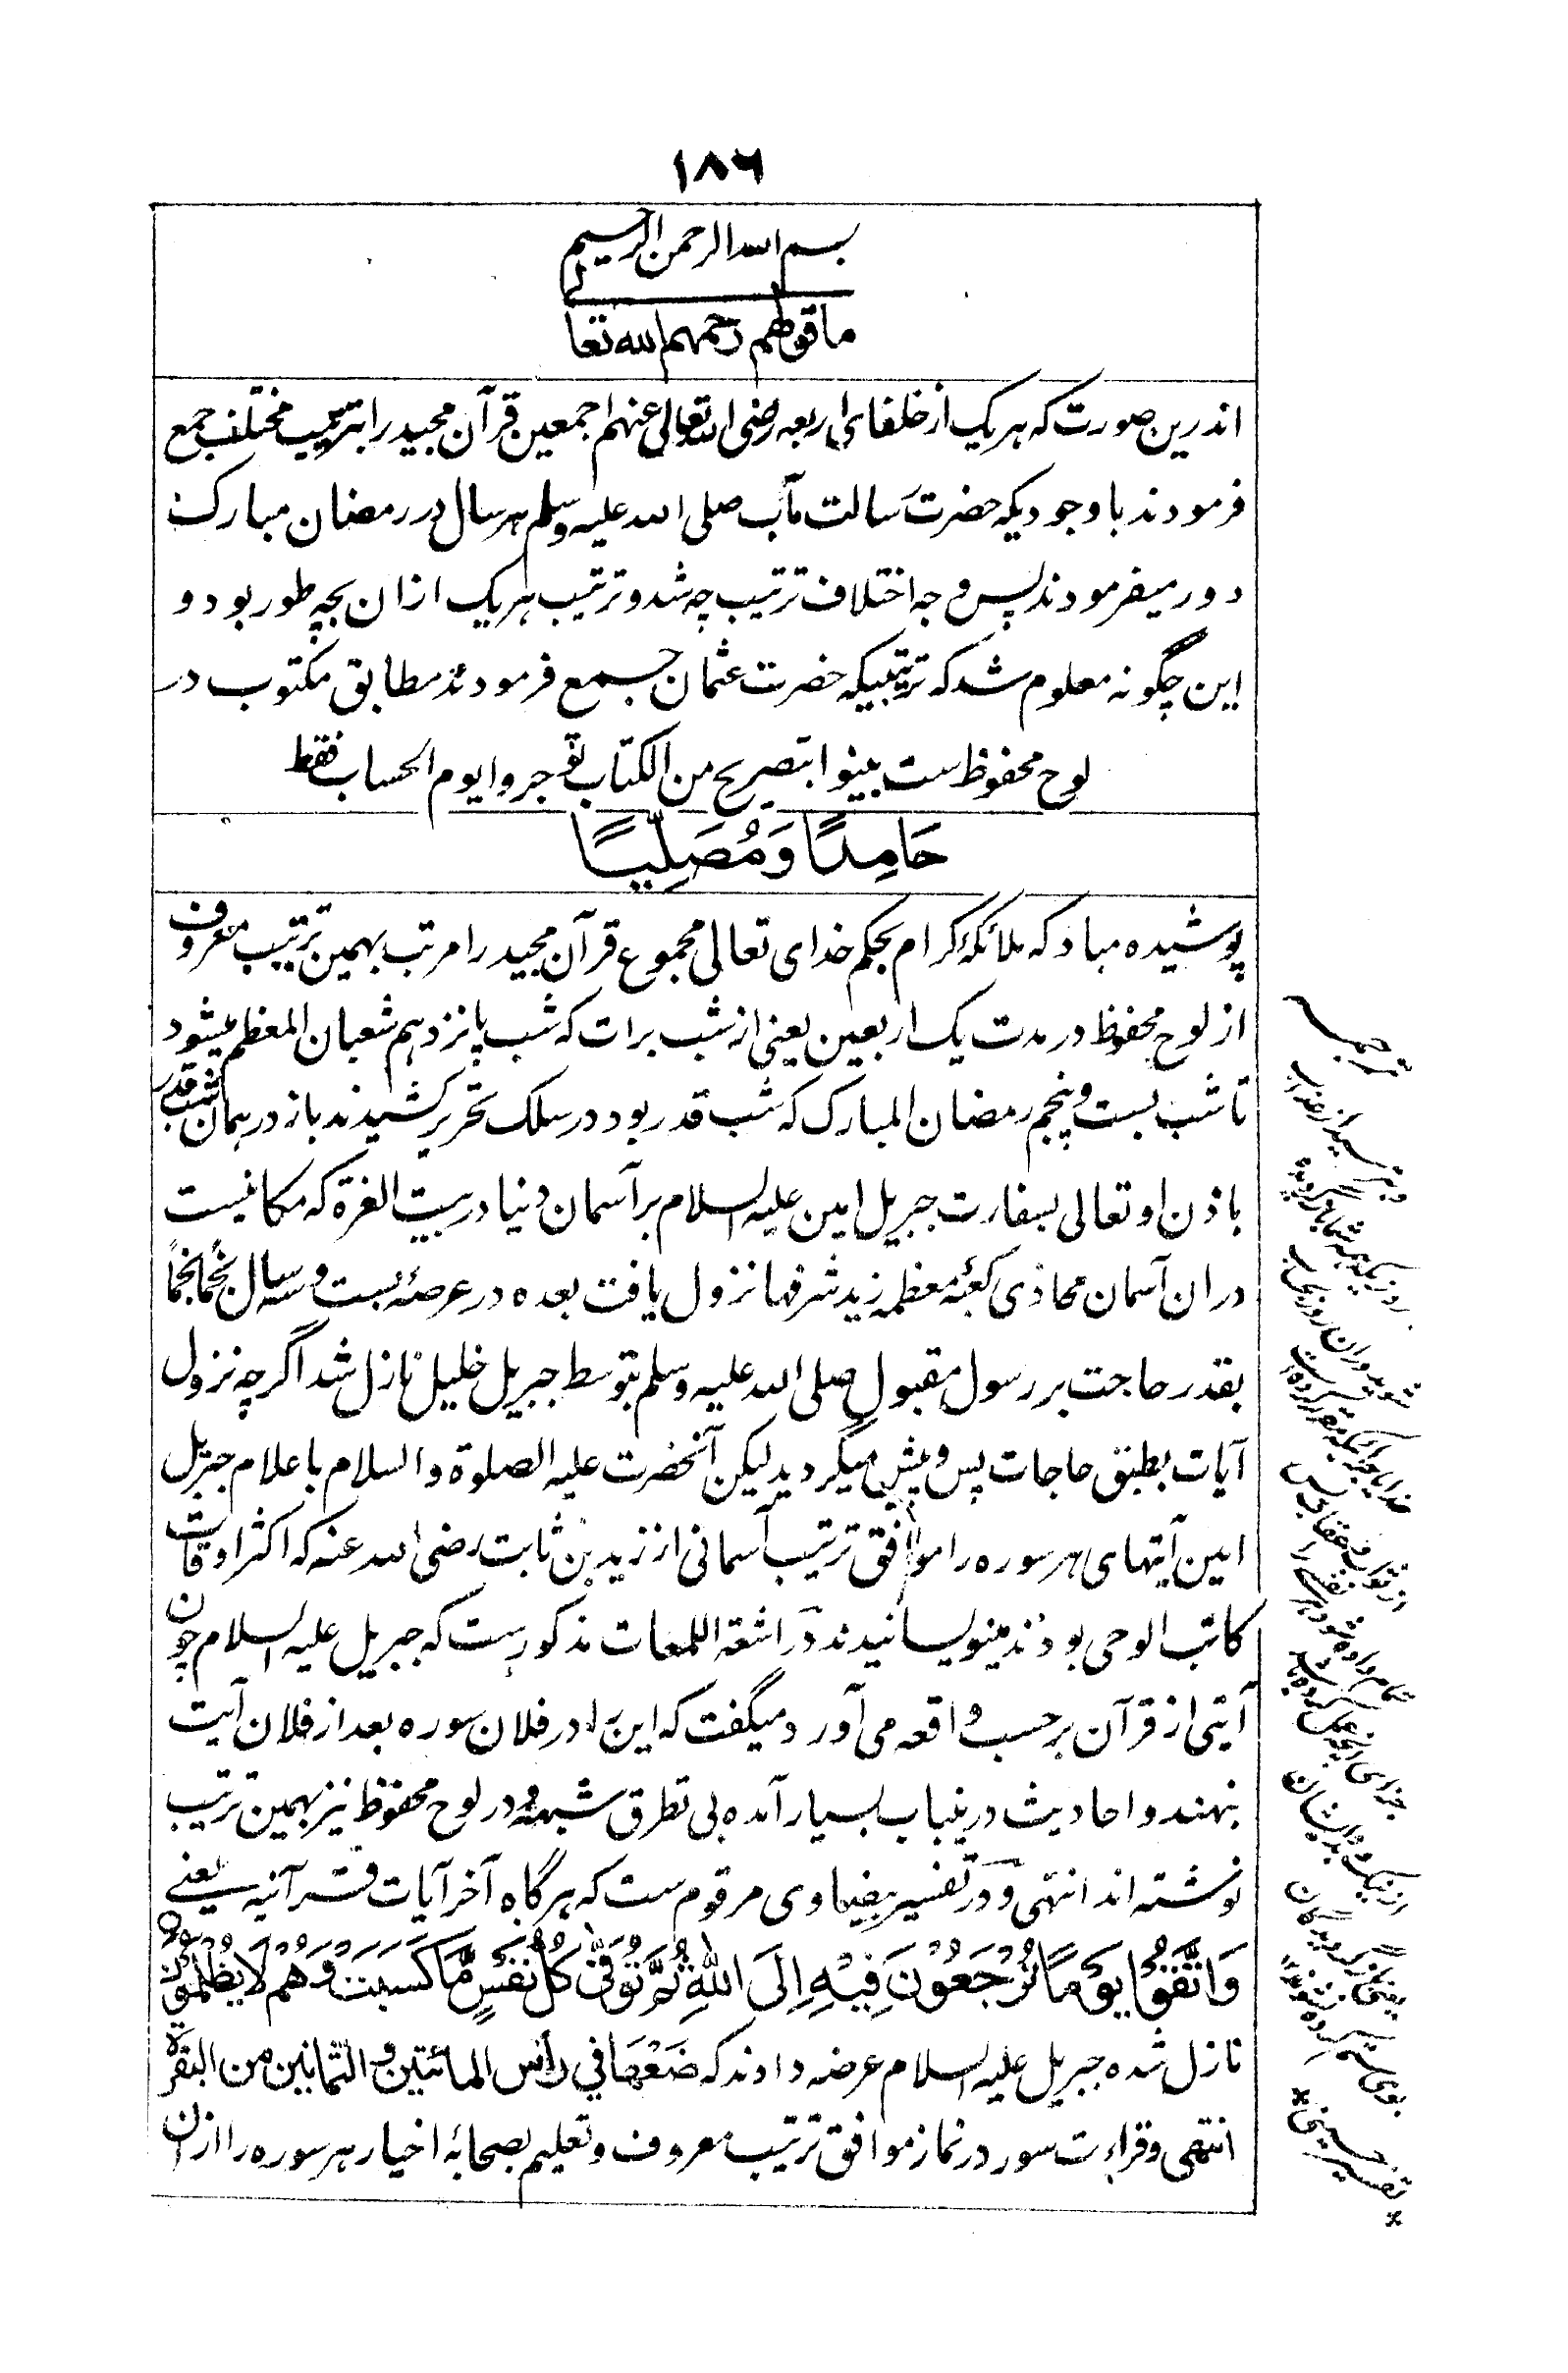 ۱۸۶
بسم الله الرحمن الرحیم
ما قولهم رحمهم الله تعا
اندرین صورت که هر یک از خلفای اربعه رضی الله تعالی عنهم اجمعین قرآن مجید را بترتیب مختلف جمع
فرمودند باوجودیکه حضرت رسالت مآب صلی الله علیه وسلم هر سال در رمضان مبارک
دور میفرمودند پس وجه اختلاف ترتیب چه شد و ترتیب هر یک ازان بچه طور بود و
این چگونه معلوم شد که ترتیبیکه حضرت عثمان جمع فرمودند مطابق مکتوب در
لوح محفوظ ست بینوا بتصریح من الکتاب توجروا یوم الحساب فقط
حَامِدًا وَمُصَلِّیًا
پوشیده مباد که ملائکهٔ کرام بحکم خدای تعالی مجموع قرآن مجید را مرتب بهمین ترتیب معروف
از لوح محفوظ در مدت یک اربعین یعنی از شب برات که شب پانزدهم شعبان المعظم میشود
تا شب بست و پنجم رمضان المبارک که شب قدر بود در سلک تحریر کشیدند باز در همان شب قدر
باذن او تعالی بسفارت جبریل امین علیه السلام بر آسمان دنیا در بیت العزة که مکانیست
دران آسمان محاذی کعبهٔ معظمه زید شرفها نزول یافت بعده در عرصهٔ بست و سه سال نجماً نجماً
بقدر حاجت بر رسول مقبول صلی الله علیه وسلم بتوسط جبریل خلیل نازل شد اگرچه نزول
آیات بطبق حاجات پس و پیش میگردید لیکن آنحضرت علیه الصلوة والسلام باعلام جبریل
امین آیتهای هر سوره را موافق ترتیب آسمانی از زید بن ثابت رضی الله عنه که اکثر اوقات
کاتب الوحی بودند مینویسانیدند در اشعة اللمعات مذکورست که جبریل علیه السلام چون
آیتی از قرآن برحسب واقعه می آورد میگفت که این را در فلان سوره بعد از فلان آیت
بنهند و احادیث درینباب بسیار آمده بی تطرق شبهه و در لوح محفوظ نیز بهمین ترتیب
نوشته اند انتهی و در تفسیر بیضاوی مرقوم ست که هرگاه آخر آیات قرآنیه یعنے
وَاتَّقُوْا یَوْمًا تُرْجَعُوْنَ فِیْهِ اِلَی اللّٰهِ ثُمَّ تُوَفّٰی کُلُّ نَفْسٍ مَّا کَسَبَتْ وَهُمْ لَا یُظْلَمُوْنَ
نازل شده جبریل علیه السلام عرضه دادند که ضَعْهَا فی رأس المائتین والثمانین من البقرة
انتهی و قراءت سور در نماز موافق ترتیب معروف و تعلیم بصحابهٔ اخیار هر سوره را ازان
ترجمه
روزیکه همه شما
جزای
تفسیر حسینی